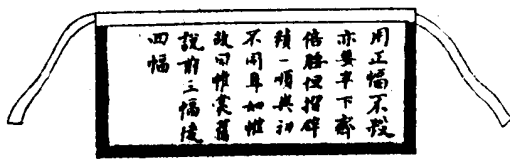 用正幅不殺
亦要半下齊
倍腰但摺碎
積一順與初
不同耳如帷
故曰帷裳舊
說前三幅後
四幅